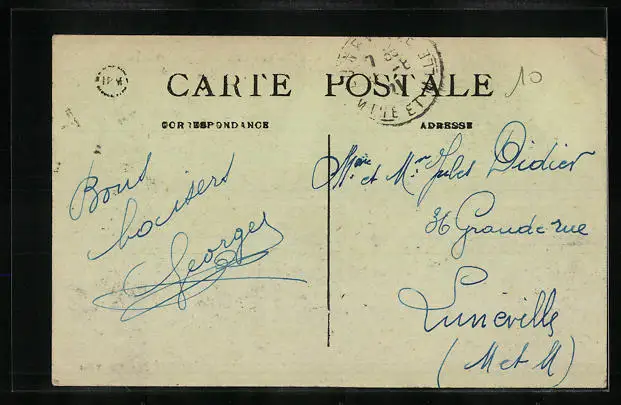 CARTE POSTALE
CORRESPONDANCE
ADRESSE
10
Bons
baisers
Georges
Mme et Mr Jules Didier
36 Grande rue
Luneville
(M et M)